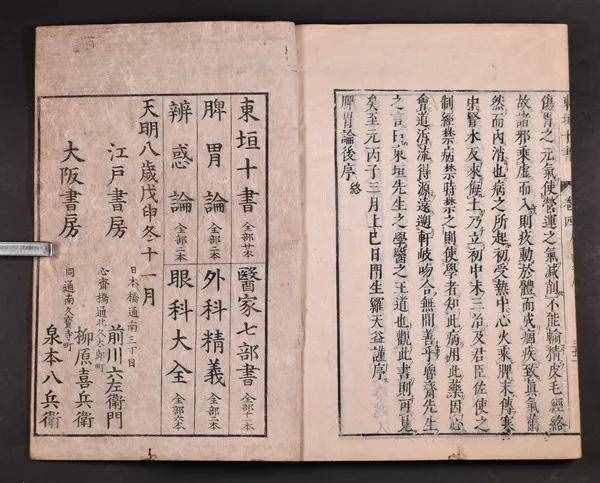 東垣十書 卷四
傷胃之元氣使營運之氣減削不能輸精皮毛經絡
故諸邪乘虛而入則痰動於體而成痼疾致真氣
然而內消也病之所起初受熱中心火乘脾末傳寒
中腎水反來侮土乃立初中末三治及君臣佐使之
制經禁病禁時禁之則使學者知此病用此藥因心
會道泝流得源遠遡軒岐吻合無間善乎魯齋先生
之言曰東垣先生之學醫之王道也觀此書則可見
矣至元丙子三月上巳日門生羅天益謹序
脾胃論後序 終
東垣十書 全部廿本 醫家七部書 全部十二本
脾胃論 全部二本 外科精義 全部二本
辨惑論 全部二本 眼科大全 全部六本
天明八歲戊申冬十一月
江戶書房 日本橋通南三丁目 前川六左衛門
大阪書房 心齋橋通北久太郎町 柳原喜兵衛
同通南久寶寺町 泉本八兵衛